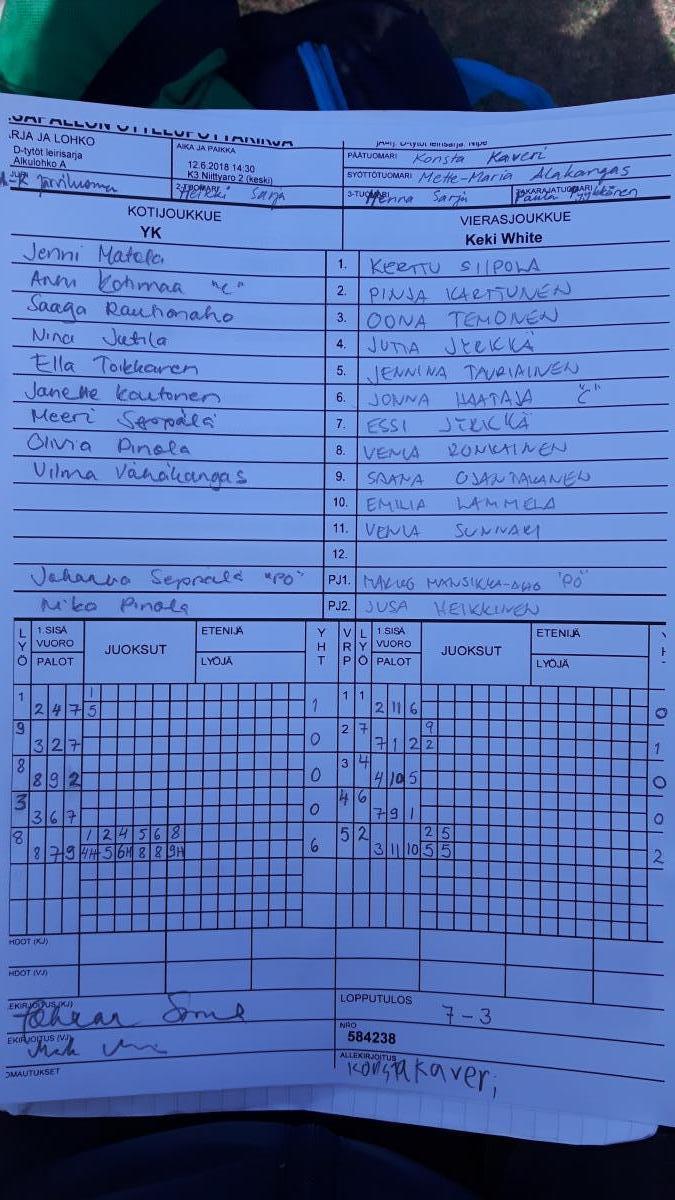 SARJA JA LOHKO
D-tytöt leirisarja
Alkulohko A
AIKA JA PAIKKA
12.6.2018 14:30
K3 Niittyaro 2 (keski)
D-tytöt leirisarja,
PÄÄTUOMARI Konsta Kaveri
SYÖTTÖTUOMARI Mette-Maria Alakangas
Järviluoma
2-TUOMARI Heikki Sarja
3-TUOMARI Henna Sarja
TAKARAJATUOMARI Paula Pyykkönen
KOTIJOUKKUE
YK
VIERASJOUKKUE
Keki White
Jenni Matela 1. KERTTU SIIPOLA
Anni Kotimaa "C" 2. PINJA KARTTUNEN
Saaga Rauhonaho 3. OONA TEMONEN
Nina Jutila 4. JUTTA JYRKKÄ
Ella Toikkanen 5. JENNINA TAURIAINEN
Janette Kautonen 6. JONNA HAATAJA "C"
Meeri Seppälä 7. ESSI JYRKKÄ
Olivia Pinola 8. VENLA RONKAINEN
Vilma Vähäkangas 9. SAANA OJANTAKANEN
10. EMILIA LAMMELA
11. VENLA SUNNARI
12.
Johanna Seppälä "PÖ" PJ1. MANSIKKA-AHO "PÖ"
Niko Pinola PJ2. JUSA HEIKKINEN
LYÖ 1.SISÄ VUORO PALOT JUOKSUT ETENIJÄ LYÖJÄ YHT VRP LYÖ 1.SISÄ VUORO PALOT JUOKSUT ETENIJÄ LYÖJÄ
1 1 1 1
2 4 7 5 1 2 11 6 0
9 2 7 9
3 2 7 0 7 1 2 2 1
8 3 4
8 9 2 0 4 10 5 0
3 4 6
3 6 7 0 7 9 1 0
8 1 2 4 5 6 8 5 2 2 5
8 7 9 4H 5 6H 8 8 9H 6 3 11 10 5 5 2
HDOT (KJ)
HDOT (VJ)
LEKIRJOITUS (KJ)
LOPPUTULOS
7-3
LEKIRJOITUS (VJ)
NRO
584238
ALLEKIRJOITUS
Konsta Kaveri
OMAUTUKSET